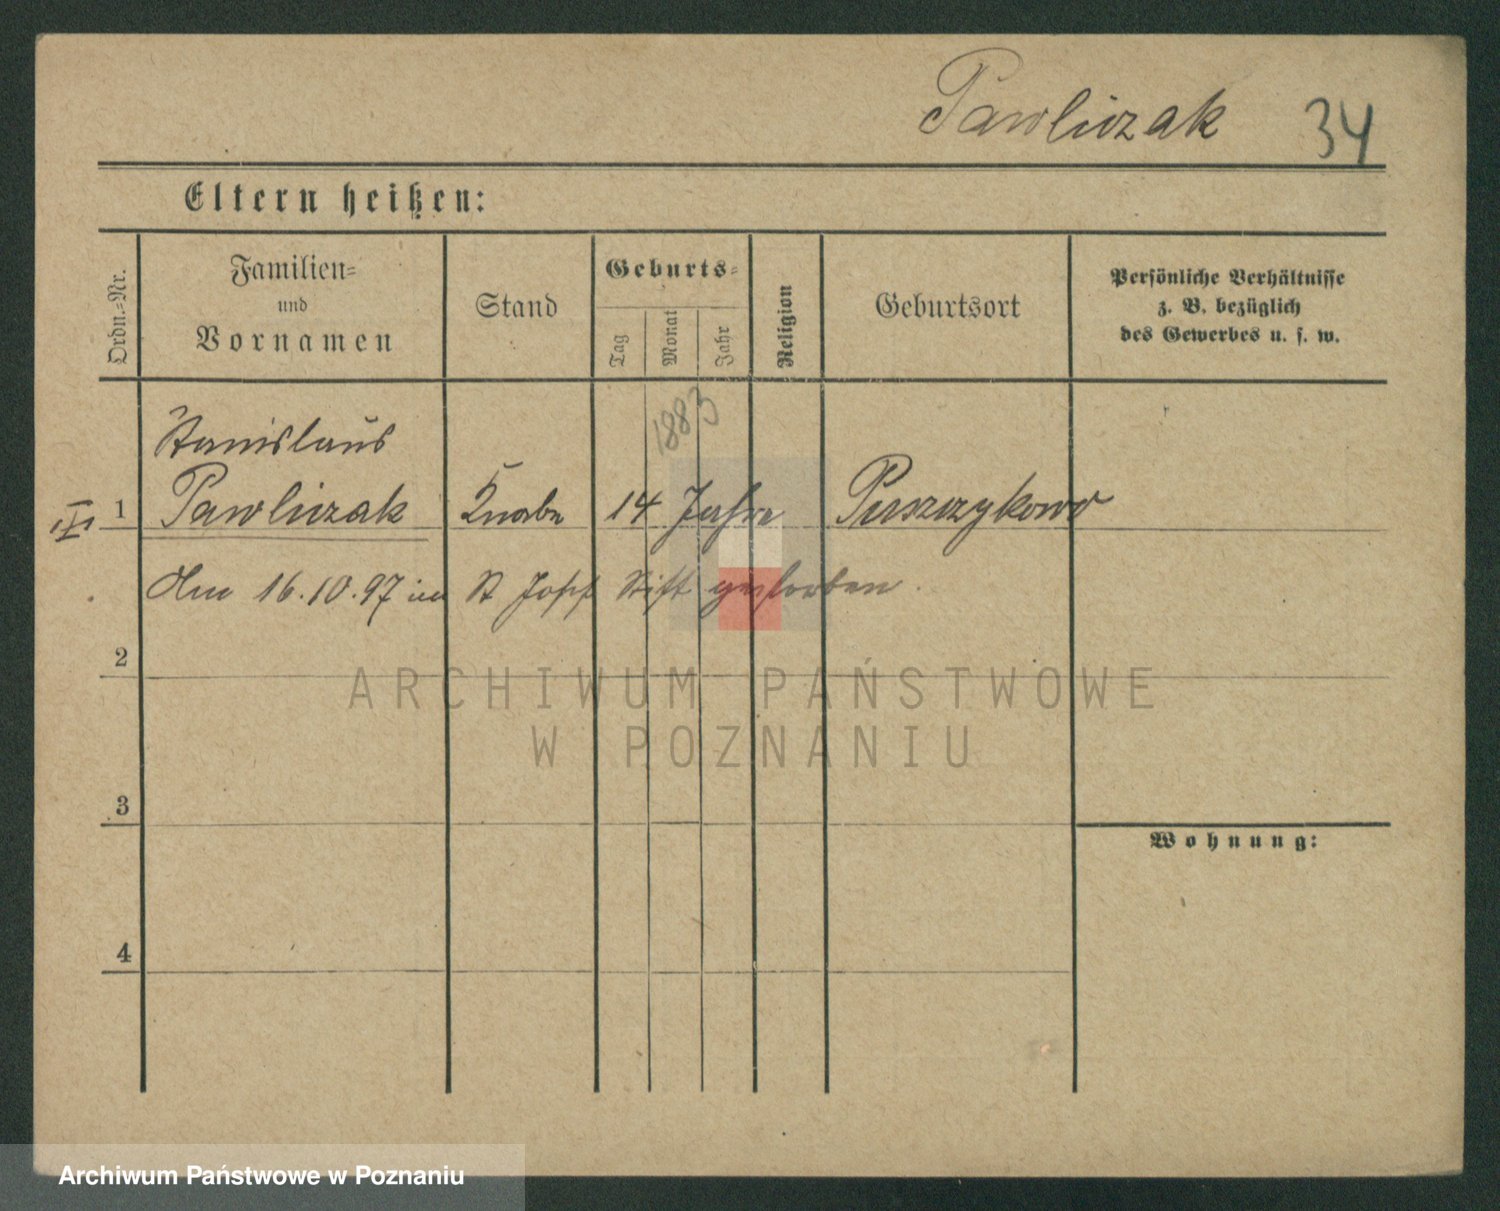 Pawliczak 34
Eltern heißen:
Ordn.-Nr.
Familien-
und
Vornamen
Stand
Geburts-
Tag
Monat
Jahr
Religion
Geburtsort
Persönliche Verhältnisse
z. B. bezüglich
des Gewerbes u. s. w.
1883
Stanislaus
1 Pawliczak Knabe 14 Jahre Puszczykowo
Am 16.10.97 im St Josf Stift gestorben.
2
ARCHIWUM PAŃSTWOWE
W POZNANIU
3
Wohnung:
4
Archiwum Państwowe w Poznaniu